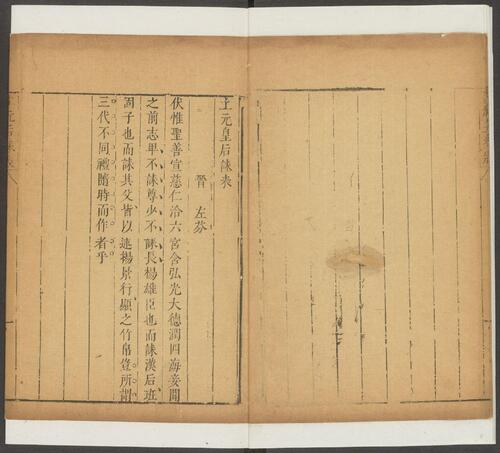 上元皇后誄表
晉 左芬
伏惟聖善宣慈仁洽六宮含弘光大德潤四海妾聞
之前志卑不誄尊少不誄長楊雄臣也而誄漢后班
固子也而誄其父皆以述揚景行顯之竹帛豈所謂
三代不同禮隨時而作者乎